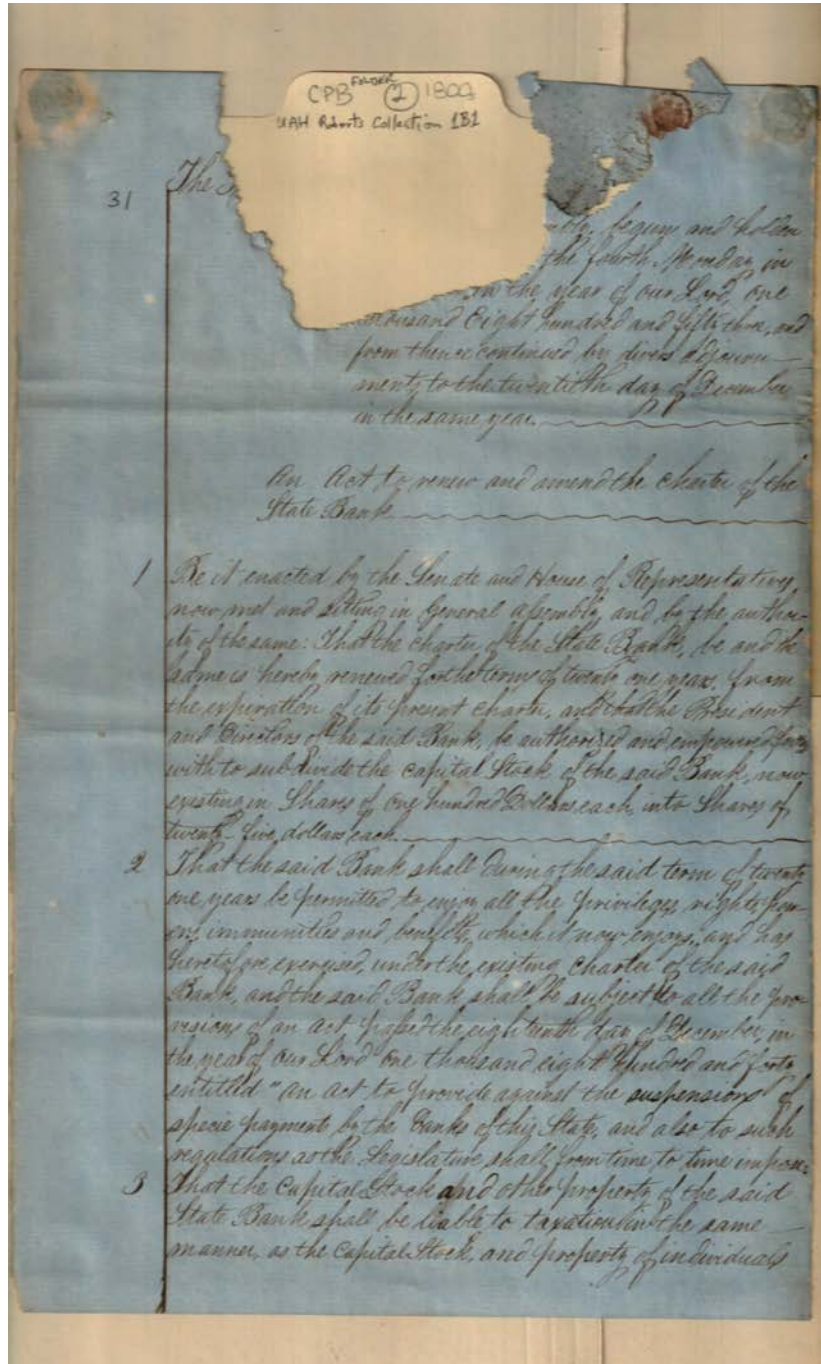 FOLDER
CPB 2 1809
UAH Roberts Collection 1B1
31
The
mbly, begun and holden
the fourth Monday in
in the year of our Lord, one
thousand Eight hundred and fifty three, and
from thence continued by divers adjourn-
ments, to the twentieth day of December
in the same year.
An Act, to renew and amend the charter of the
State Bank
1 Be it enacted by the Senate and House of Representatives
now met and sitting in General Assembly, and by the author-
ity of the same: That the charter of the State Bank, be and the
same is hereby renewed for the term of twenty one years, from
the expiration of its present charter, and that the President
and Directors of the said Bank, be authorized and empowered forth
with to subdivide the capital Stock of the said Bank, now
existing in Shares of one hundred Dollars each, into Shares of
twenty-five dollars each.
2 That the said Bank shall during the said term of twenty
one years be permitted to enjoy all the privileges, rights, pow-
ers, immunities and benefits, which it now enjoys, and has
heretofore exercised, under the existing charter of the said
Bank, and the said Bank shall be subject to all the pro-
visions of an act passed the eighteenth day of December, in
the year of our Lord one thousand eight hundred and forty
entitled "an act to provide against the suspension of
specie payments by the Banks of this State, and also to such
regulations as the Legislature shall from time to time impose.
3 That the Capital Stock and other property of the said
State Bank shall be liable to taxation in the same
manner, as the Capital Stock, and property of individuals